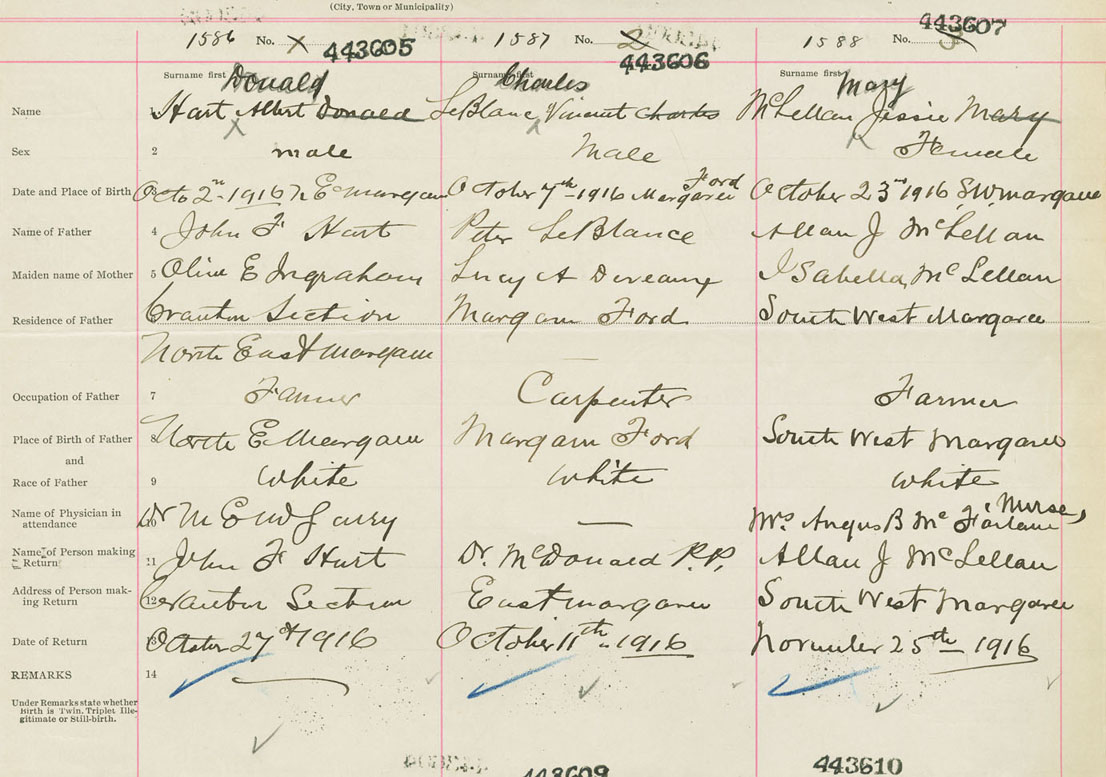 (City, Town or Municipality)
1586 No. X 443605 1587 No. 2 443606 1588 No. 3 443607
Surname first Surname first Surname first
Donald Charles Mary
Name 1 Hart Albert Donald LeBlanc, Vincent Charles McLellan Jessie Mary
Sex 2 male Male Female
Ford
Date and Place of Birth 3 Octo 2nd 1916 N.E. margaree October 7th 1916 Margaree October 23rd 1916 S.W. margaree
Name of Father 4 John F Hart Peter LeBlance Allan J McLellan
Maiden name of Mother 5 Olive E Ingraham Lucy A Deveaux Isabella McLellan
Residence of Father 6 Cranton Section Margaree Ford South West Margaree
North East Margaree —
Occupation of Father 7 Farmer Carpenter Farmer
Place of Birth of Father 8 North E Margaree Margaree Ford South West Margaree
and
Race of Father 9 White White White
Nurse,
Name of Physician in
attendance 10 Dr M E — Mrs Angus B McFarlane
Name of Person making
Return 11 John F Hart Dr. McDonald P.P. Allan J McLellan
Address of Person mak-
ing Return 12 Cranton Section East margaree South West Margaree
Date of Return 13 October 27th 1916 October 11th 1916 November 25th 1916
REMARKS 14
Under Remarks state whether
Birth is Twin, Triplet Ille-
gitimate or Still-birth.
443609 443610